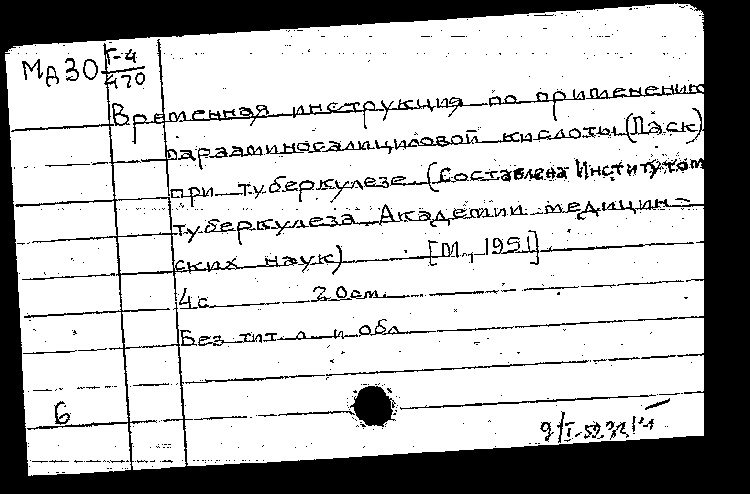 МД30 Г-4
470
Временная инструкция по применению
парааминосалициловой кислоты (Паск)
при туберкулезе (Составлена Институтом
туберкулеза Академии медицин-
ских наук) [М., 1951].
4с 20см.
Без тит л и обл
6